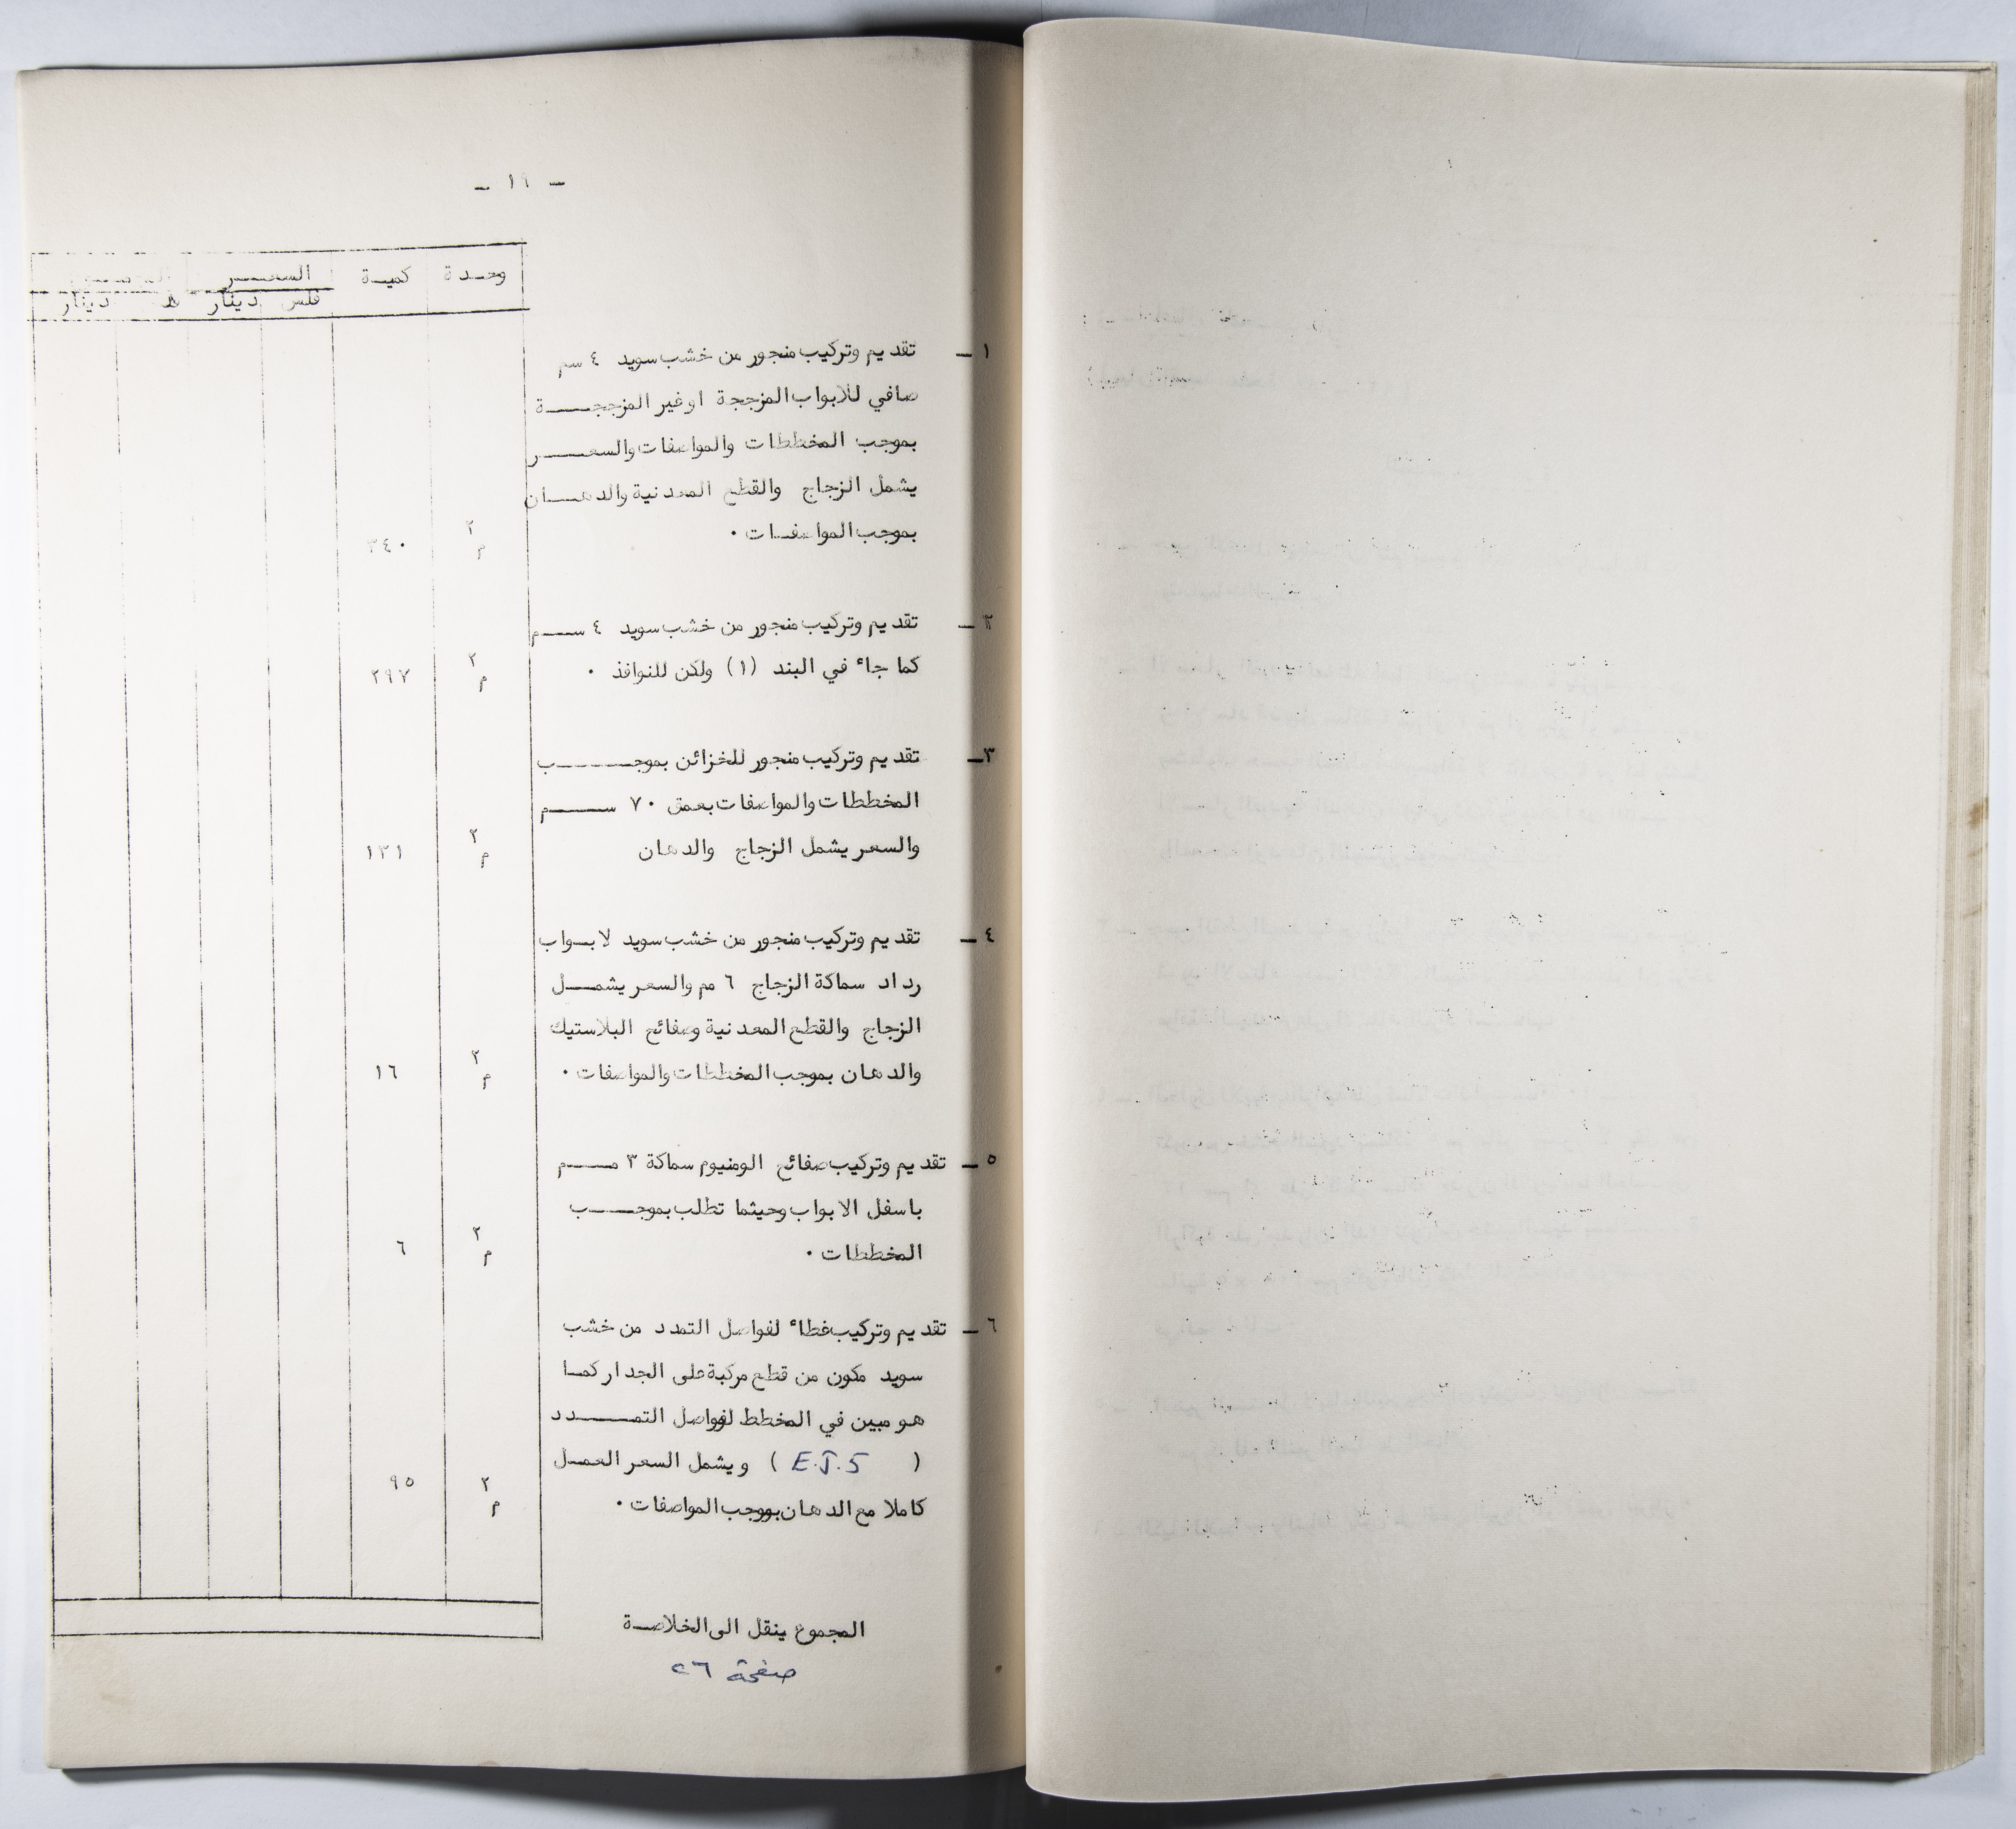 - ١٩ -
وحدة كمية السعر
فلس دينار دينار
١ - تقديم وتركيب منجور من خشب سويد ٤ سم
صافي للابواب المزججة اوغير المزججة
بموجب المخططات والمواصفات والسعر
يشمل الزجاج والقطع المعدنية والدهان
بموجب المواصفات . م٢ ٣٤٠
٢ - تقديم وتركيب منجور من خشب سويد ٤ سم
كما جاء في البند (١) ولكن للنوافذ . م٢ ٢٩٧
٣ - تقديم وتركيب منجور للخزائن بموجب
المخططات والمواصفات بعمق ٧٠ سم
والسعر يشمل الزجاج والدهان م٢ ١٣١
٤ - تقديم وتركيب منجور من خشب سويد لابواب
رداد سماكة الزجاج ٦ مم والسعر يشمل
الزجاج والقطع المعدنية وصفائح البلاستيك
والدهان بموجب المخططات والمواصفات . م٢ ١٦
٥ - تقديم وتركيب صفائح الومنيوم سماكة ٣ مم
باسفل الابواب وحيثما تطلب بموجب
المخططات . م٢ ٦
٦ - تقديم وتركيب غطاء لفواصل التمدد من خشب
سويد مكون من قطع مركبة على الجدار كما
هو مبين في المخطط لفواصل التمدد
( E.J.5 ) ويشمل السعر العمل
كاملا مع الدهان بموجب المواصفات . م٢ ٩٥
المجموع ينقل الى الخلاصة
صفحة ٢٦